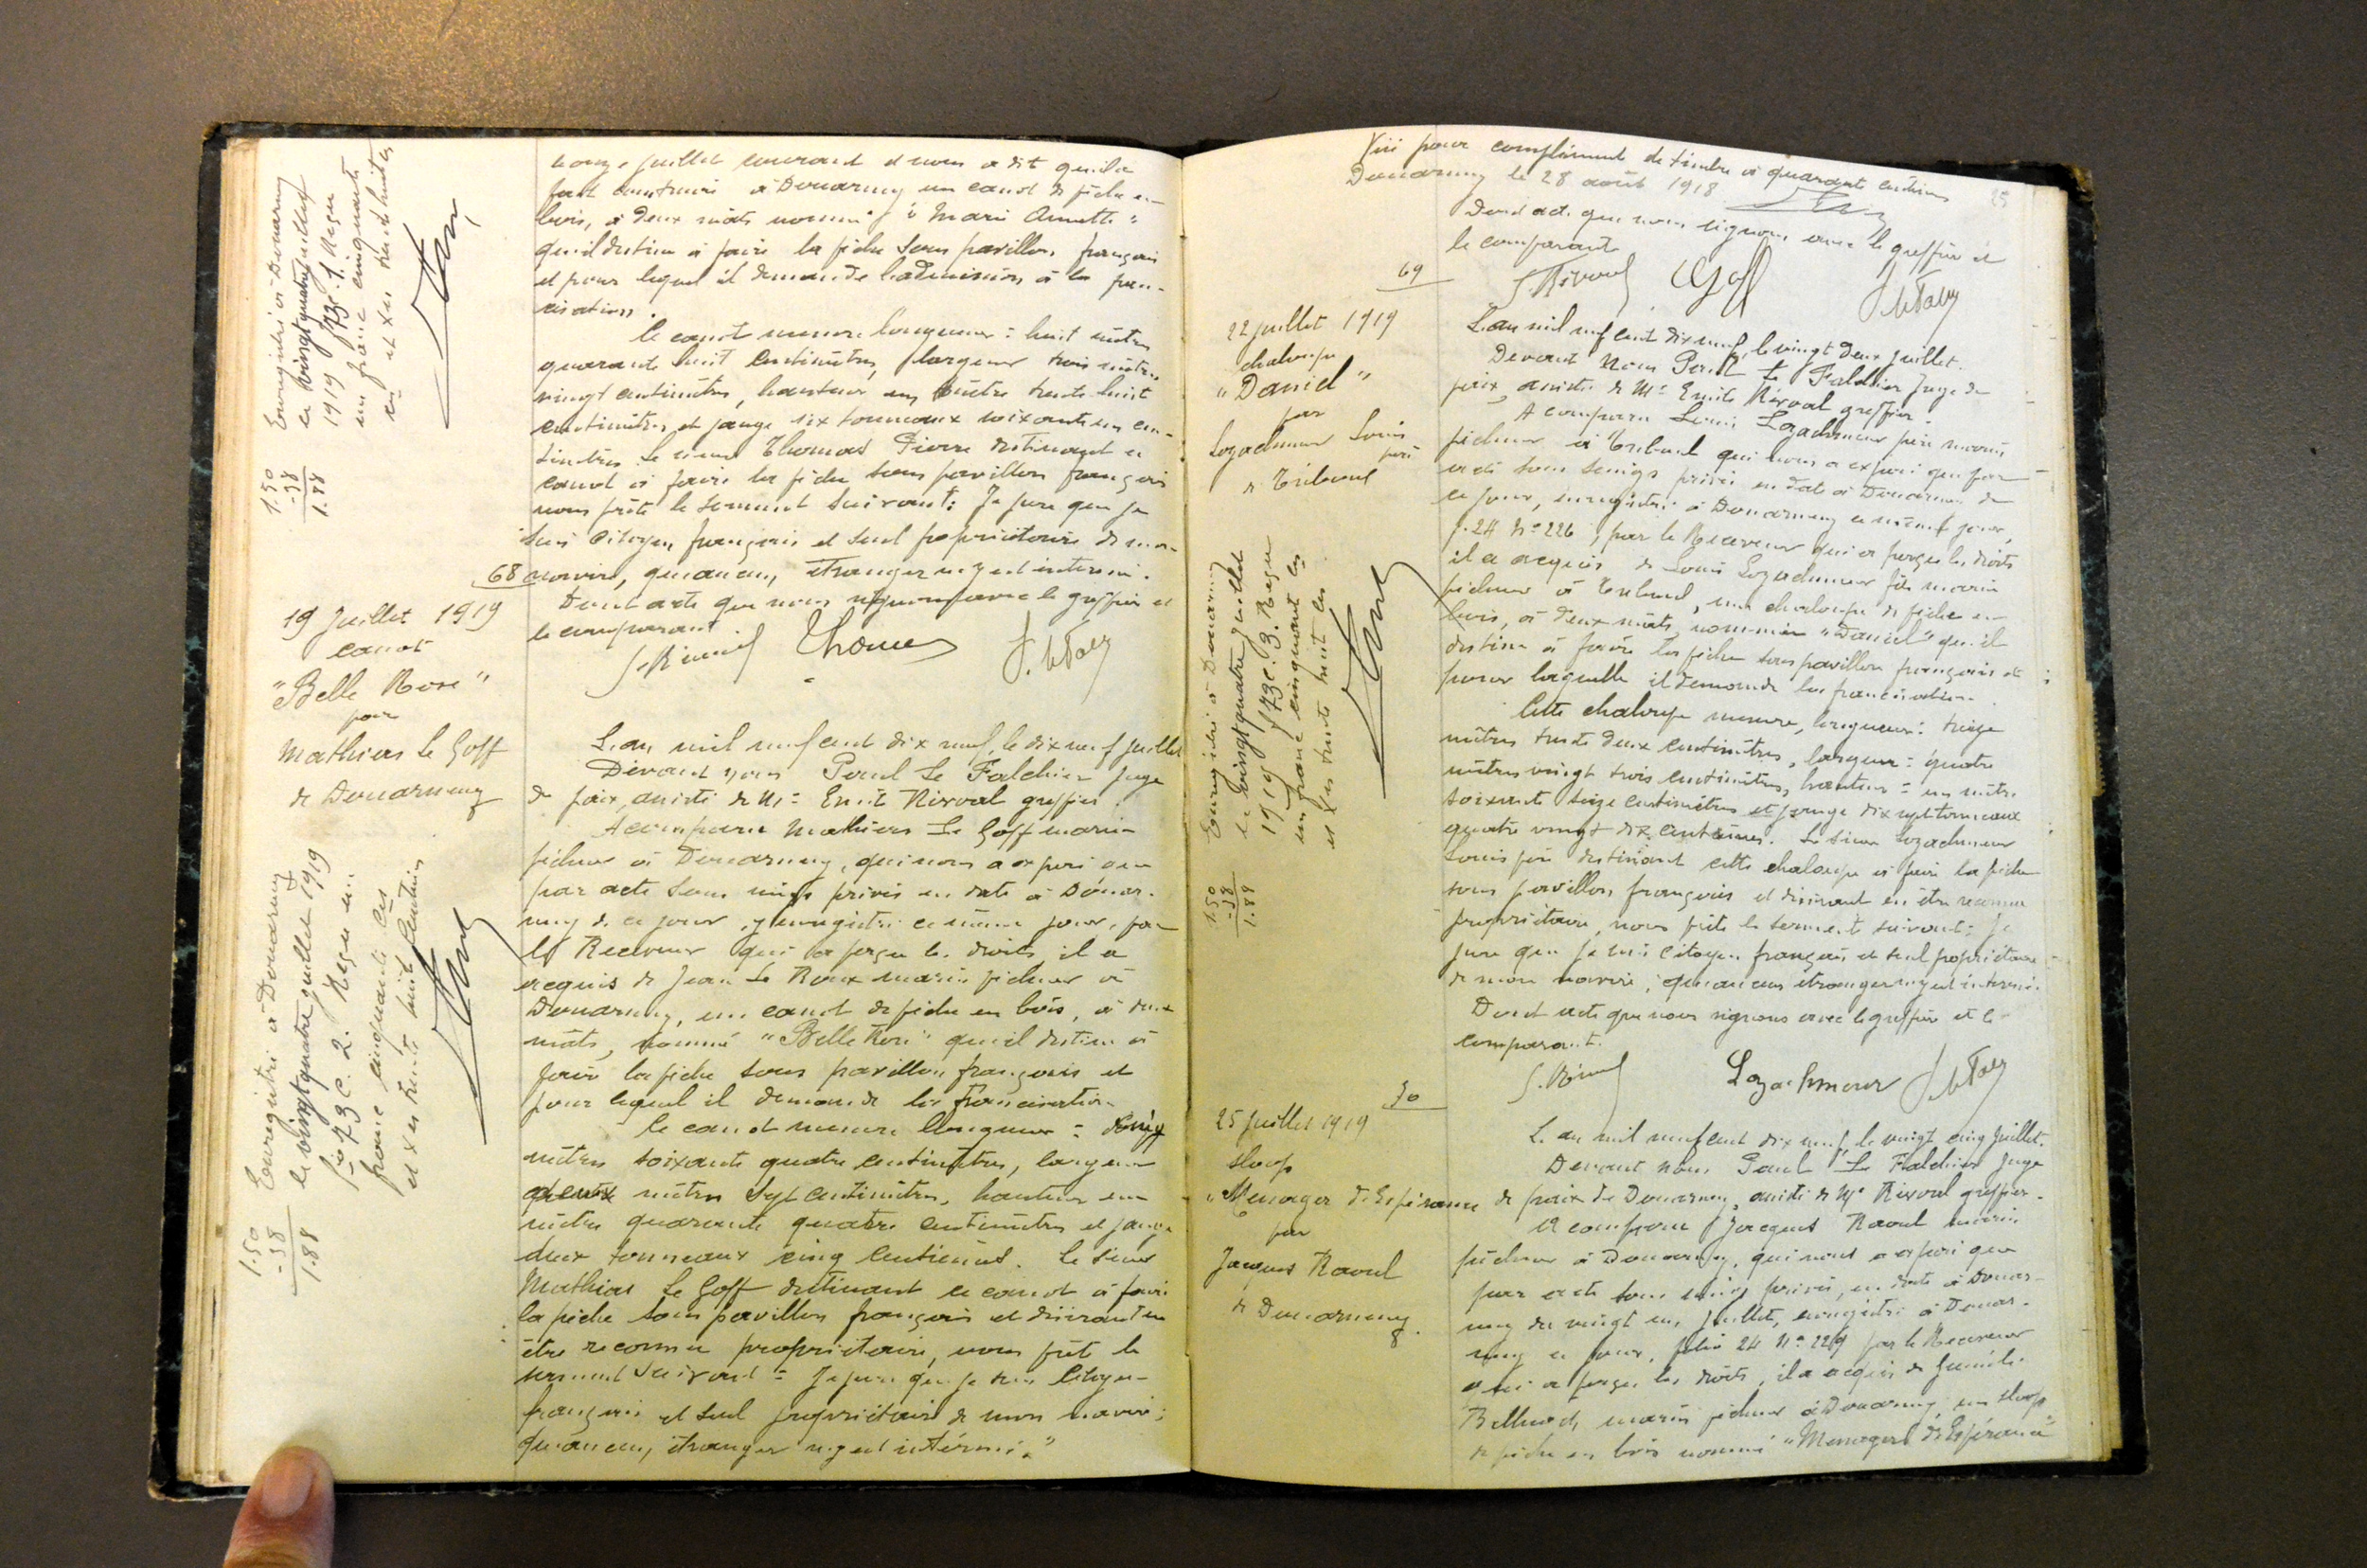 juillet courant et nous a dit qu'il a
fait construire à Douarnenez un canot de pêche en
bois, à deux mâts nommé "Marie Annette"
qu'il destine à faire la pêche sous pavillon français
et pour lequel il demande l'admission à la fran-
cisation.
Le canot mesure longueur : huit mètres
quarante huit centimètres, largeur trois mètres
vingt centimètres, hauteur un mètre trente huit
centimètres et jauge six tonneaux soixante un cen-
tièmes. Le sieur Thomas Pierre destinant ce
canot à faire la pêche sous pavillon français
nous prête le serment suivant : Je jure que je
suis citoyen français et seul propriétaire de mon
navire, qu'aucun étranger n'y est intéressé.
Dont acte que nous signons avec le greffier et
le comparant.
Thomas
Enregistré à Douarnenez
le vingt quatre juillet
1919 f° 73 c. 1. Reçu
un franc cinquante
1.50
-38
1.88
68
19 Juillet 1919
canot
"Belle Rose"
par
Mathias Le Goff
de Douarnenez
L'an mil neuf cent dix neuf, le dix neuf juillet
Devant nous Paul Le Falchier Juge
de paix, assisté de Me Emile Rivoal greffier.
A comparu Mathias Le Goff marin
pêcheur à Douarnenez, qui nous a exposé que
par acte sous seings privés en date à Douar-
nenez de ce jour, y enregistré ce même jour, par
le Receveur qui a perçu les droits, il a
acquis de Jean Le Roux marin pêcheur à
Douarnenez, un canot de pêche en bois, à deux
mâts, nommé "Belle Rose" qu'il destine à
faire la pêche sous pavillon français et
pour lequel il demande la francisation.
Le canot mesure longueur : cinq
mètres soixante quatre centimètres, largeur
deux mètres sept centimètres, hauteur un
mètre quarante quatre centimètres et jauge
deux tonneaux cinq centièmes. Le sieur
Mathias Le Goff destinant ce canot à faire
la pêche sous pavillon français et désirant en
être reconnu propriétaire, nous prête le
serment suivant : Je jure que je suis citoyen
français et seul propriétaire de mon navire ;
qu'aucun étranger n'y est intéressé."
Enregistré à Douarnenez
le vingt quatre juillet 1919
f° 73 c. 2. Reçu un
franc cinquante ces
et xes trente huit centimes
1.50
-38
1.88
Visé pour complément de timbre à quarante centimes
Douarnenez le 28 août 1918
25
Dont acte que nous signons avec le greffier et
le comparant.
Goff
69
22 juillet 1919
chaloupe
"Daniel"
par
Lozachmeur Louis
père
de Tréboul
L'an mil neuf cent dix neuf, le vingt deux juillet.
Devant Nous Paul Le Falchier Juge de
paix, assisté de Me Emile Rivoal greffier.
A comparu Louis Lozachmeur père marin
pêcheur à Tréboul qui nous a exposé que par
acte sous seings privés en date à Douarnenez de
ce jour, enregistré à Douarnenez ce même jour,
f. 24 N° 226, par le Receveur qui a perçu les droits
il a acquis de Louis Lozachmeur fils marin
pêcheur à Tréboul, une chaloupe de pêche en
bois, à deux mâts, nommée "Daniel" qu'il
destine à faire la pêche sous pavillon français et
pour laquelle il demande la francisation.
Cette chaloupe mesure, longueur : treize
mètres trente deux centimètres, largeur : quatre
mètres vingt trois centimètres, hauteur : un mètre
soixante seize centimètres et jauge dix sept tonneaux
quatre vingt dix centièmes. Le sieur Lozachmeur
Louis père destinant cette chaloupe à faire la pêche
sous pavillon français et désirant en être reconnu
propriétaire, nous prête le serment suivant : Je
jure que je suis citoyen français et seul propriétaire
de mon navire ; qu'aucun étranger n'y est intéressé.
Dont acte que nous signons avec le greffier et le
comparant.
Lozachmeur
Enregistré à Douarnenez
le vingt quatre juillet
1919 f° 73 c. 3. Reçu
un franc cinquante ces
et xes trente huit ces
1.50
-38
1.88
70
25 Juillet 1919
sloop
"Messager d'Espérance
par
Jacques Raoul
de Douarnenez.
L'an mil neuf cent dix neuf, le vingt cinq juillet.
Devant nous Paul Le Falchier Juge
de paix de Douarnenez, assisté de Me Rivoal greffier.
A comparu Jacques Raoul marin
pêcheur à Douarnenez, qui nous a exposé que
par acte sous seings privés, en date à Douar-
nenez du vingt un juillet, enregistré à Douar-
nenez ce jour, folio 24 N° 229 par le Receveur
qui a perçu les droits, il a acquis de
marin pêcheur à Douarnenez, un sloop
de pêche en bois nommé "Messager d'Espérance"